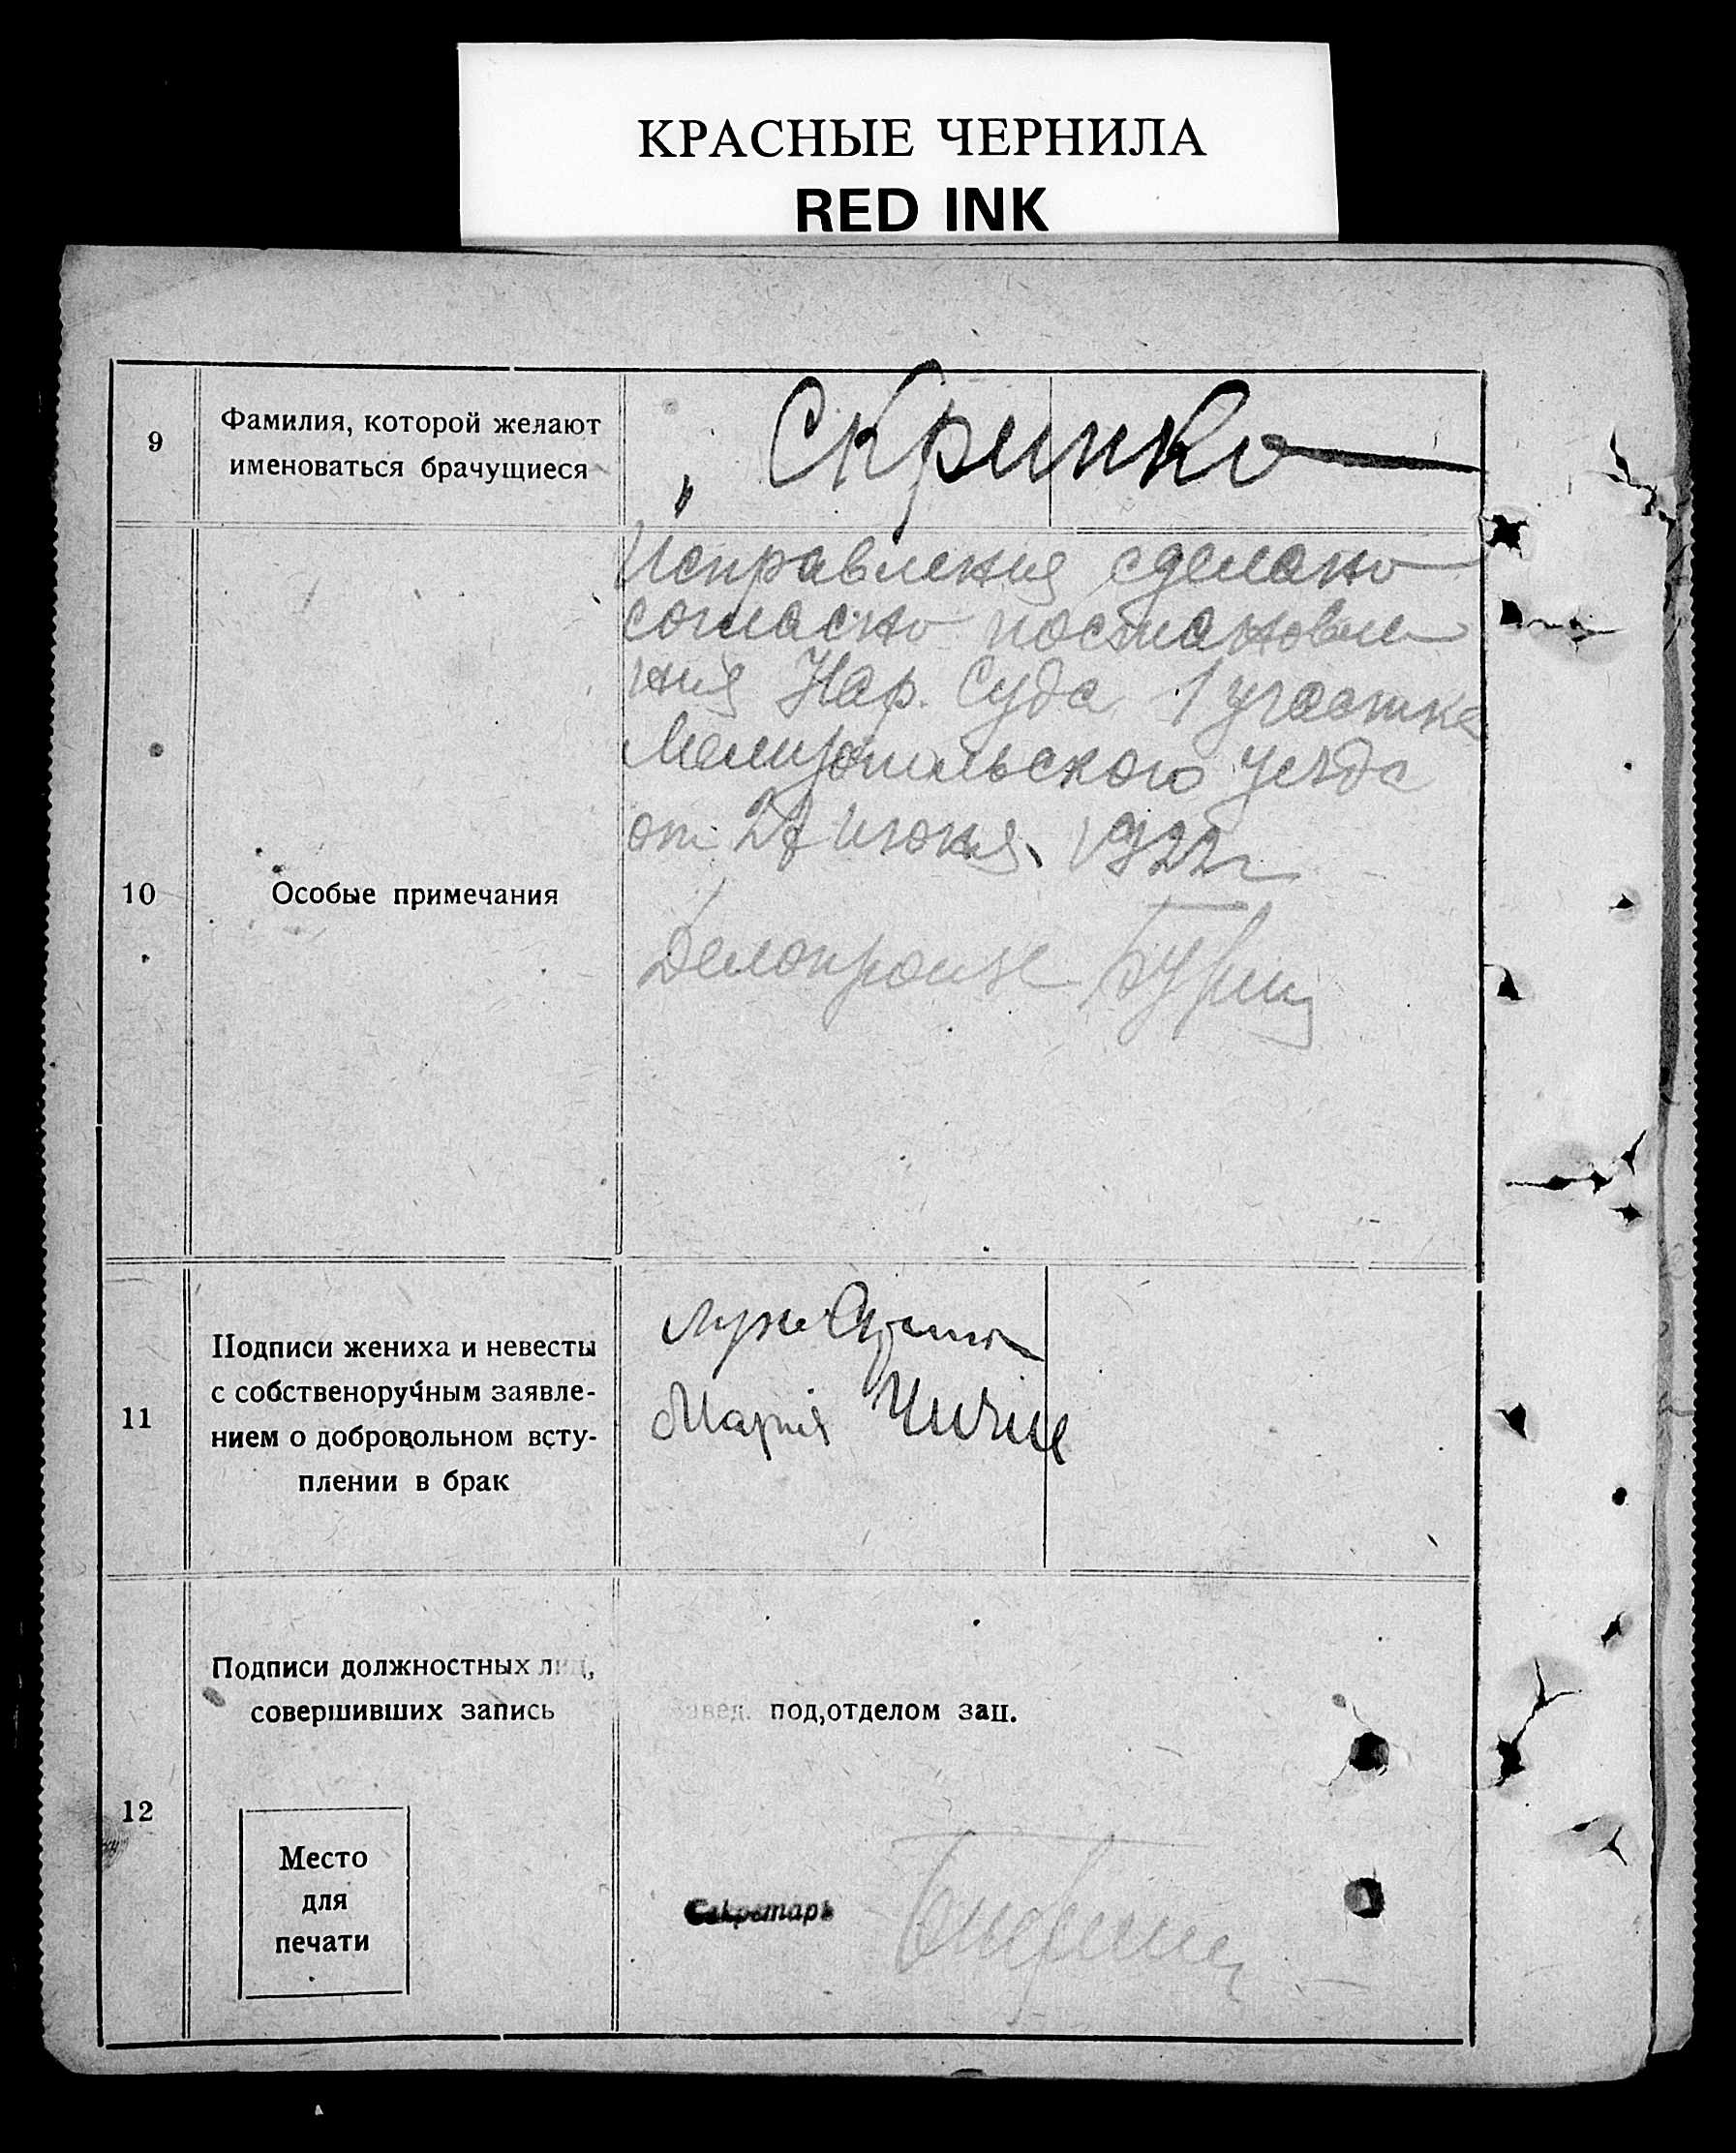 КРАСНЫЕ ЧЕРНИЛА
RED INK
9
Фамилия, которой желают
именоваться брачущиеся
„ Скрипко
10
Особые примечания
Исправления сделано
согласно постановле
ния Нар. Суда 1 участка
Мелитопольского уезда
от 27 июня 1922 г
Делопроизв
11
Подписи жениха и невесты
с собственоручным заявле-
нием о добровольном всту-
плении в брак
Мария
12
Подписи должностных лиц,
совершивших запись
Завед. под,отделом зап.
Место
для
печати
Секретарь